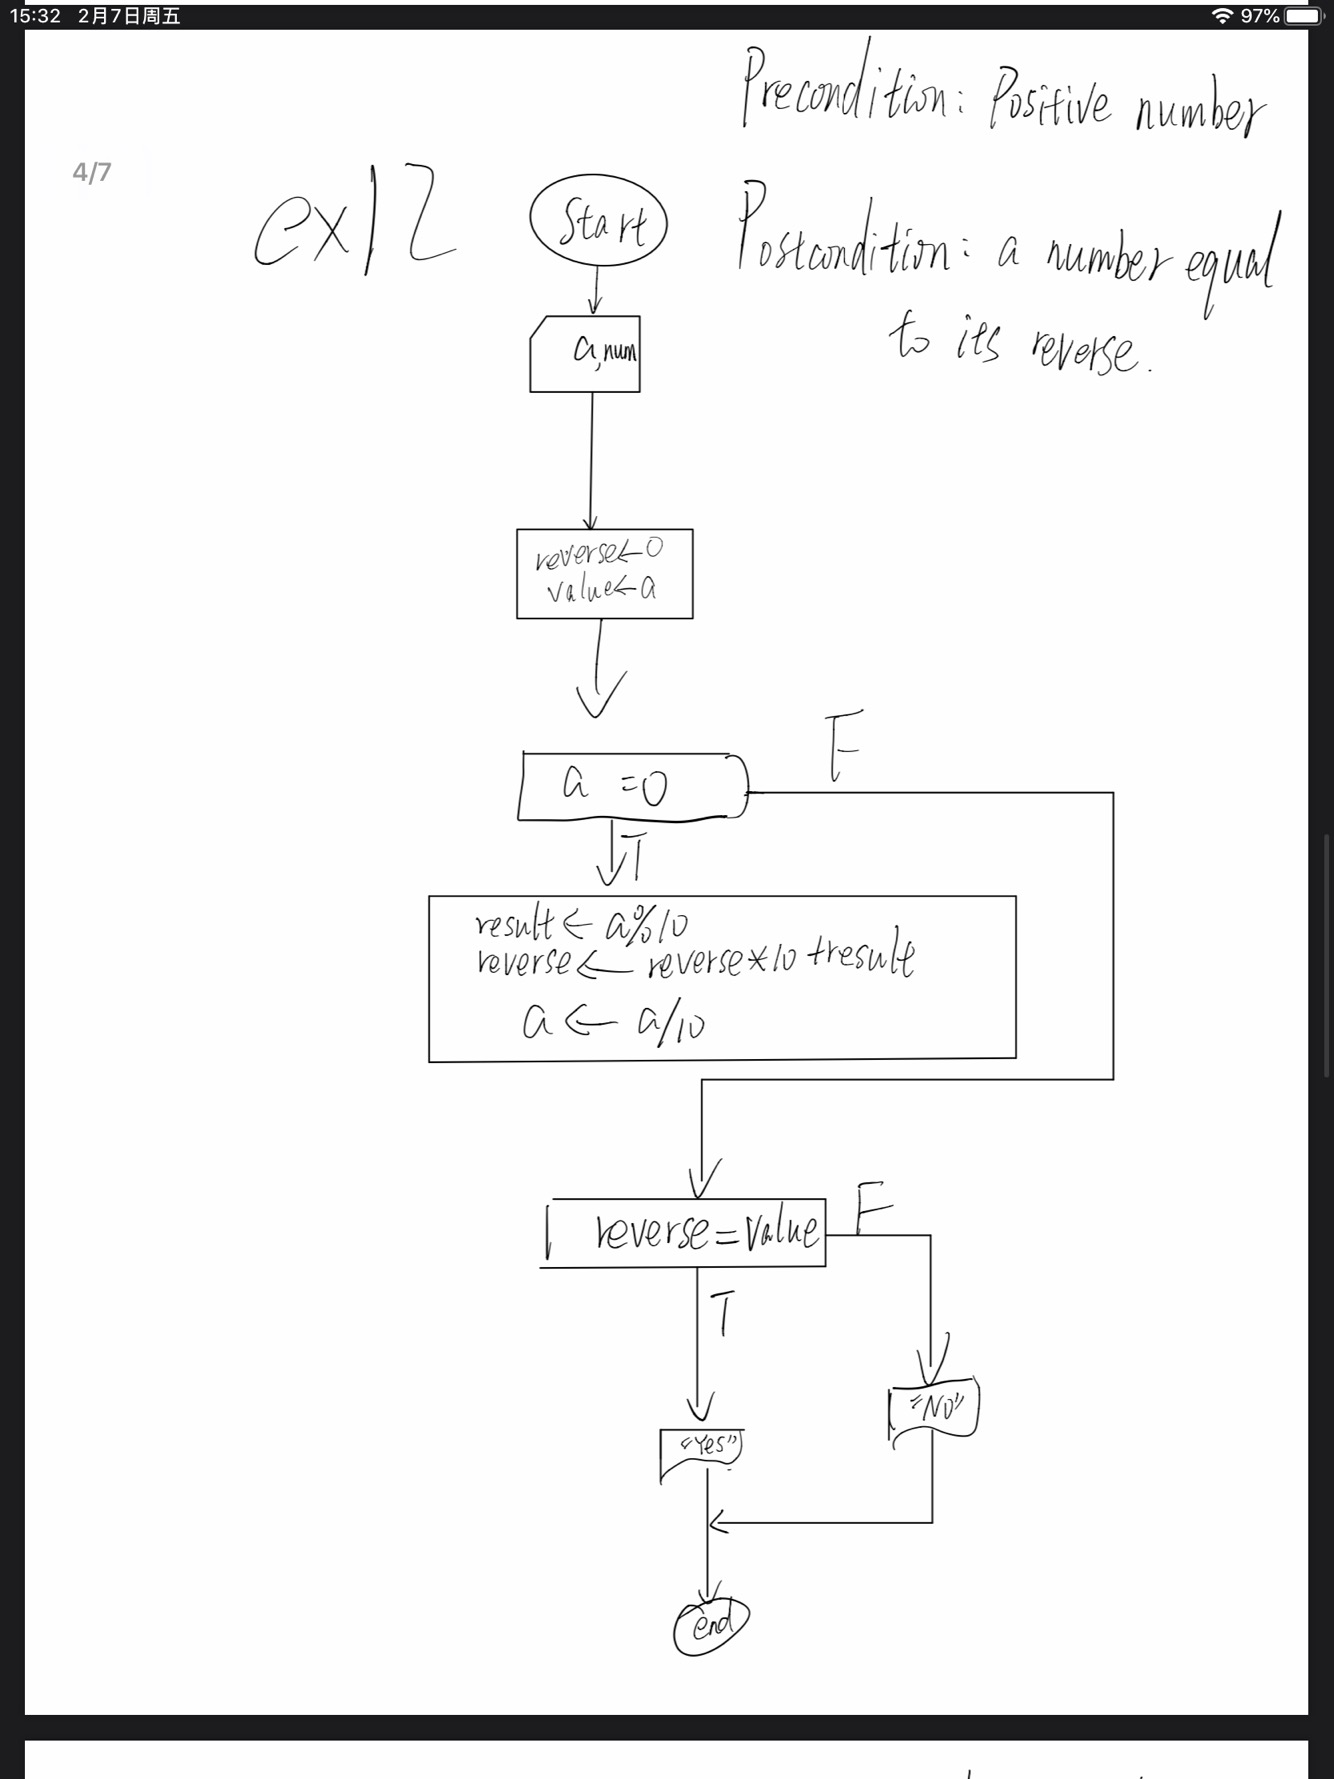 15:32 2月7日周五
97%
Precondition: Positive number
4/7
ex12
Start
Postcondition: a number equal
to its reverse.
a,num
reverse←0
value←a
a =0
F
T
result ← a%10
reverse ← reverse*10 +result
a ← a/10
reverse=value
F
T
"No"
"Yes"
end